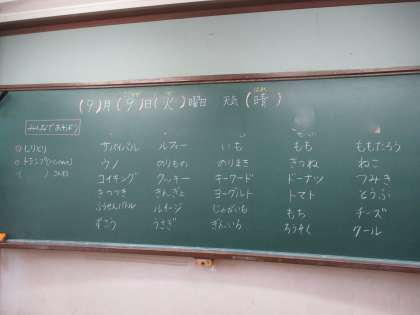 (9)月(9)日(火)曜日 天気(晴)
みんなであそぼう
しりとり
トランプ
サバイバル ルフィー いも もち ももたろう
ウノ のりもの のりまき きつね ねこ
コイキング クッキー キーワード ドーナツ つみき
きつつき きんぎょ ヨーグルト トマト とうふ
ふうせんバトル ルイージ じゃがいも もち チーズ
ずこう うさぎ ぎんいろ ろうそく クール